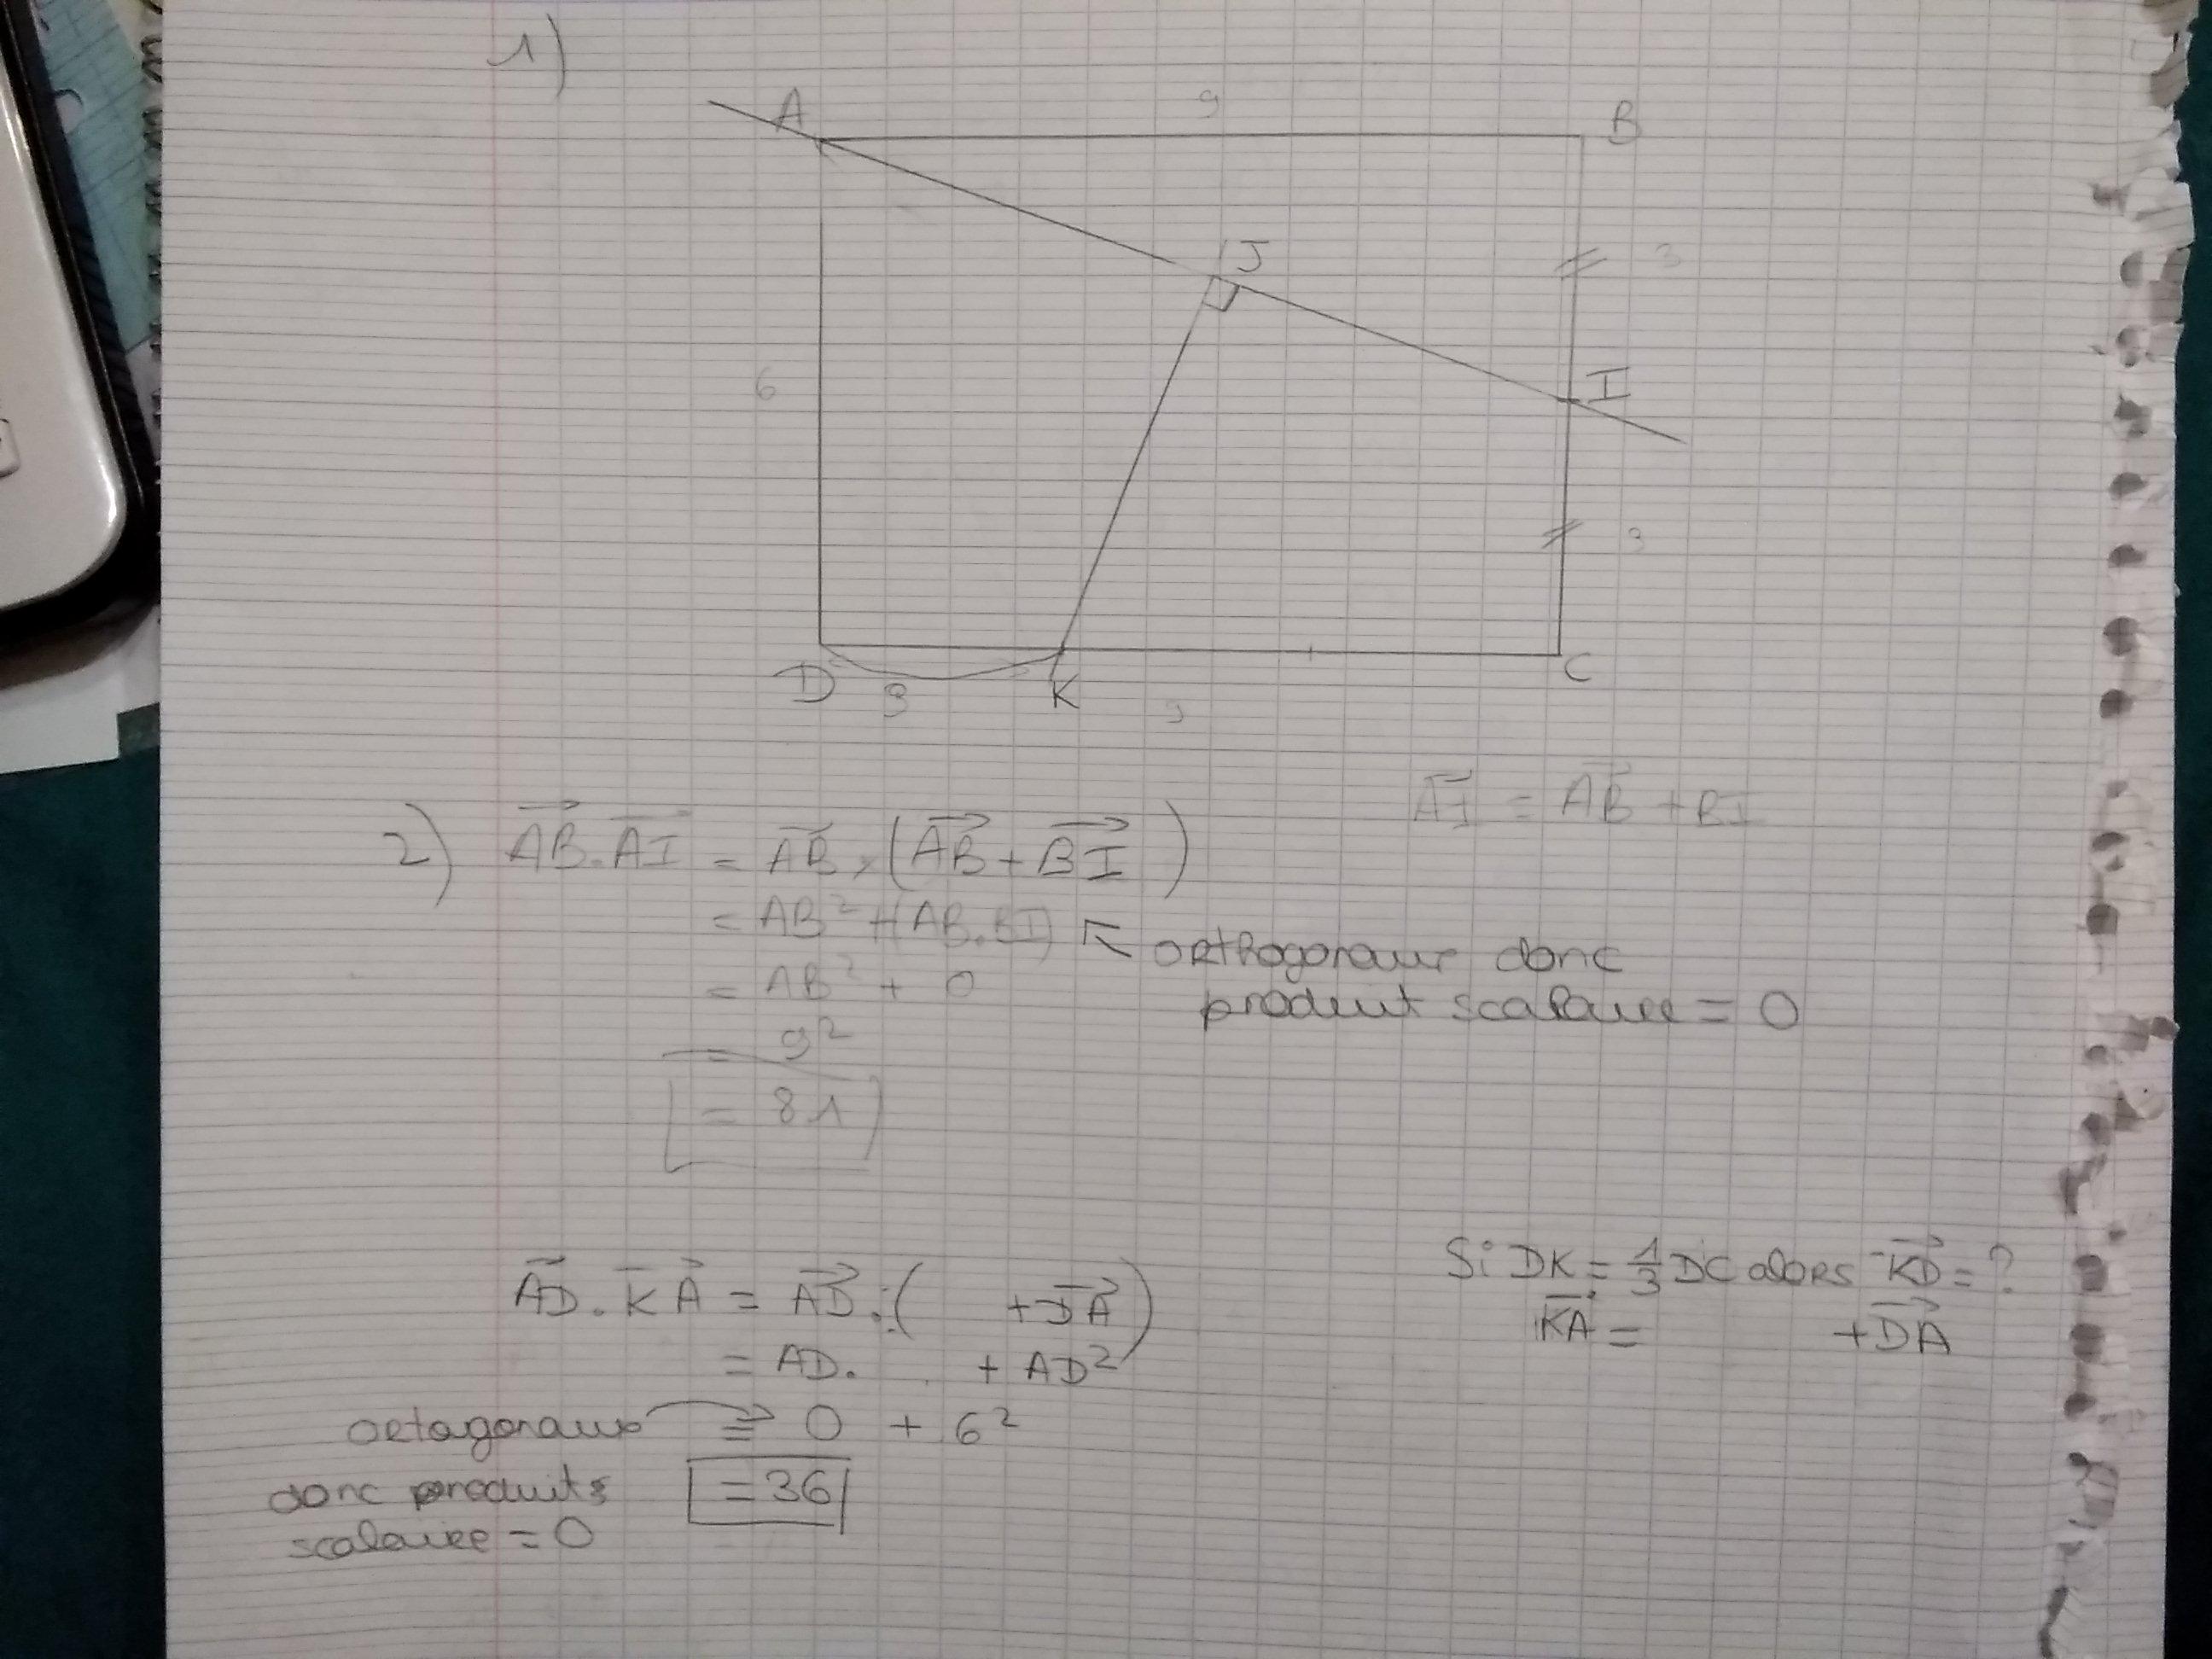 1)
A 9 B
J
3
6
I
3
D 3 K 9 C
AI = AB + BI
2) AB.AI = AB × (AB + BI)
= AB² + (AB.BI) ← orthogonaux donc
produit scalaire = 0
= AB² + 0
= 9²
= 81
Si DK = 1/3 DC alors KD = ?
AD.KA = AD.( + DA)
KA = + DA
= AD. + AD²
ortogonaux → = 0 + 6²
donc produits
scalaire = 0
= 36